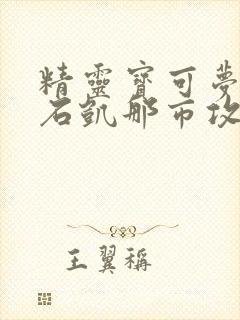 精靈寶可夢
石凱那市攻
王翼稱